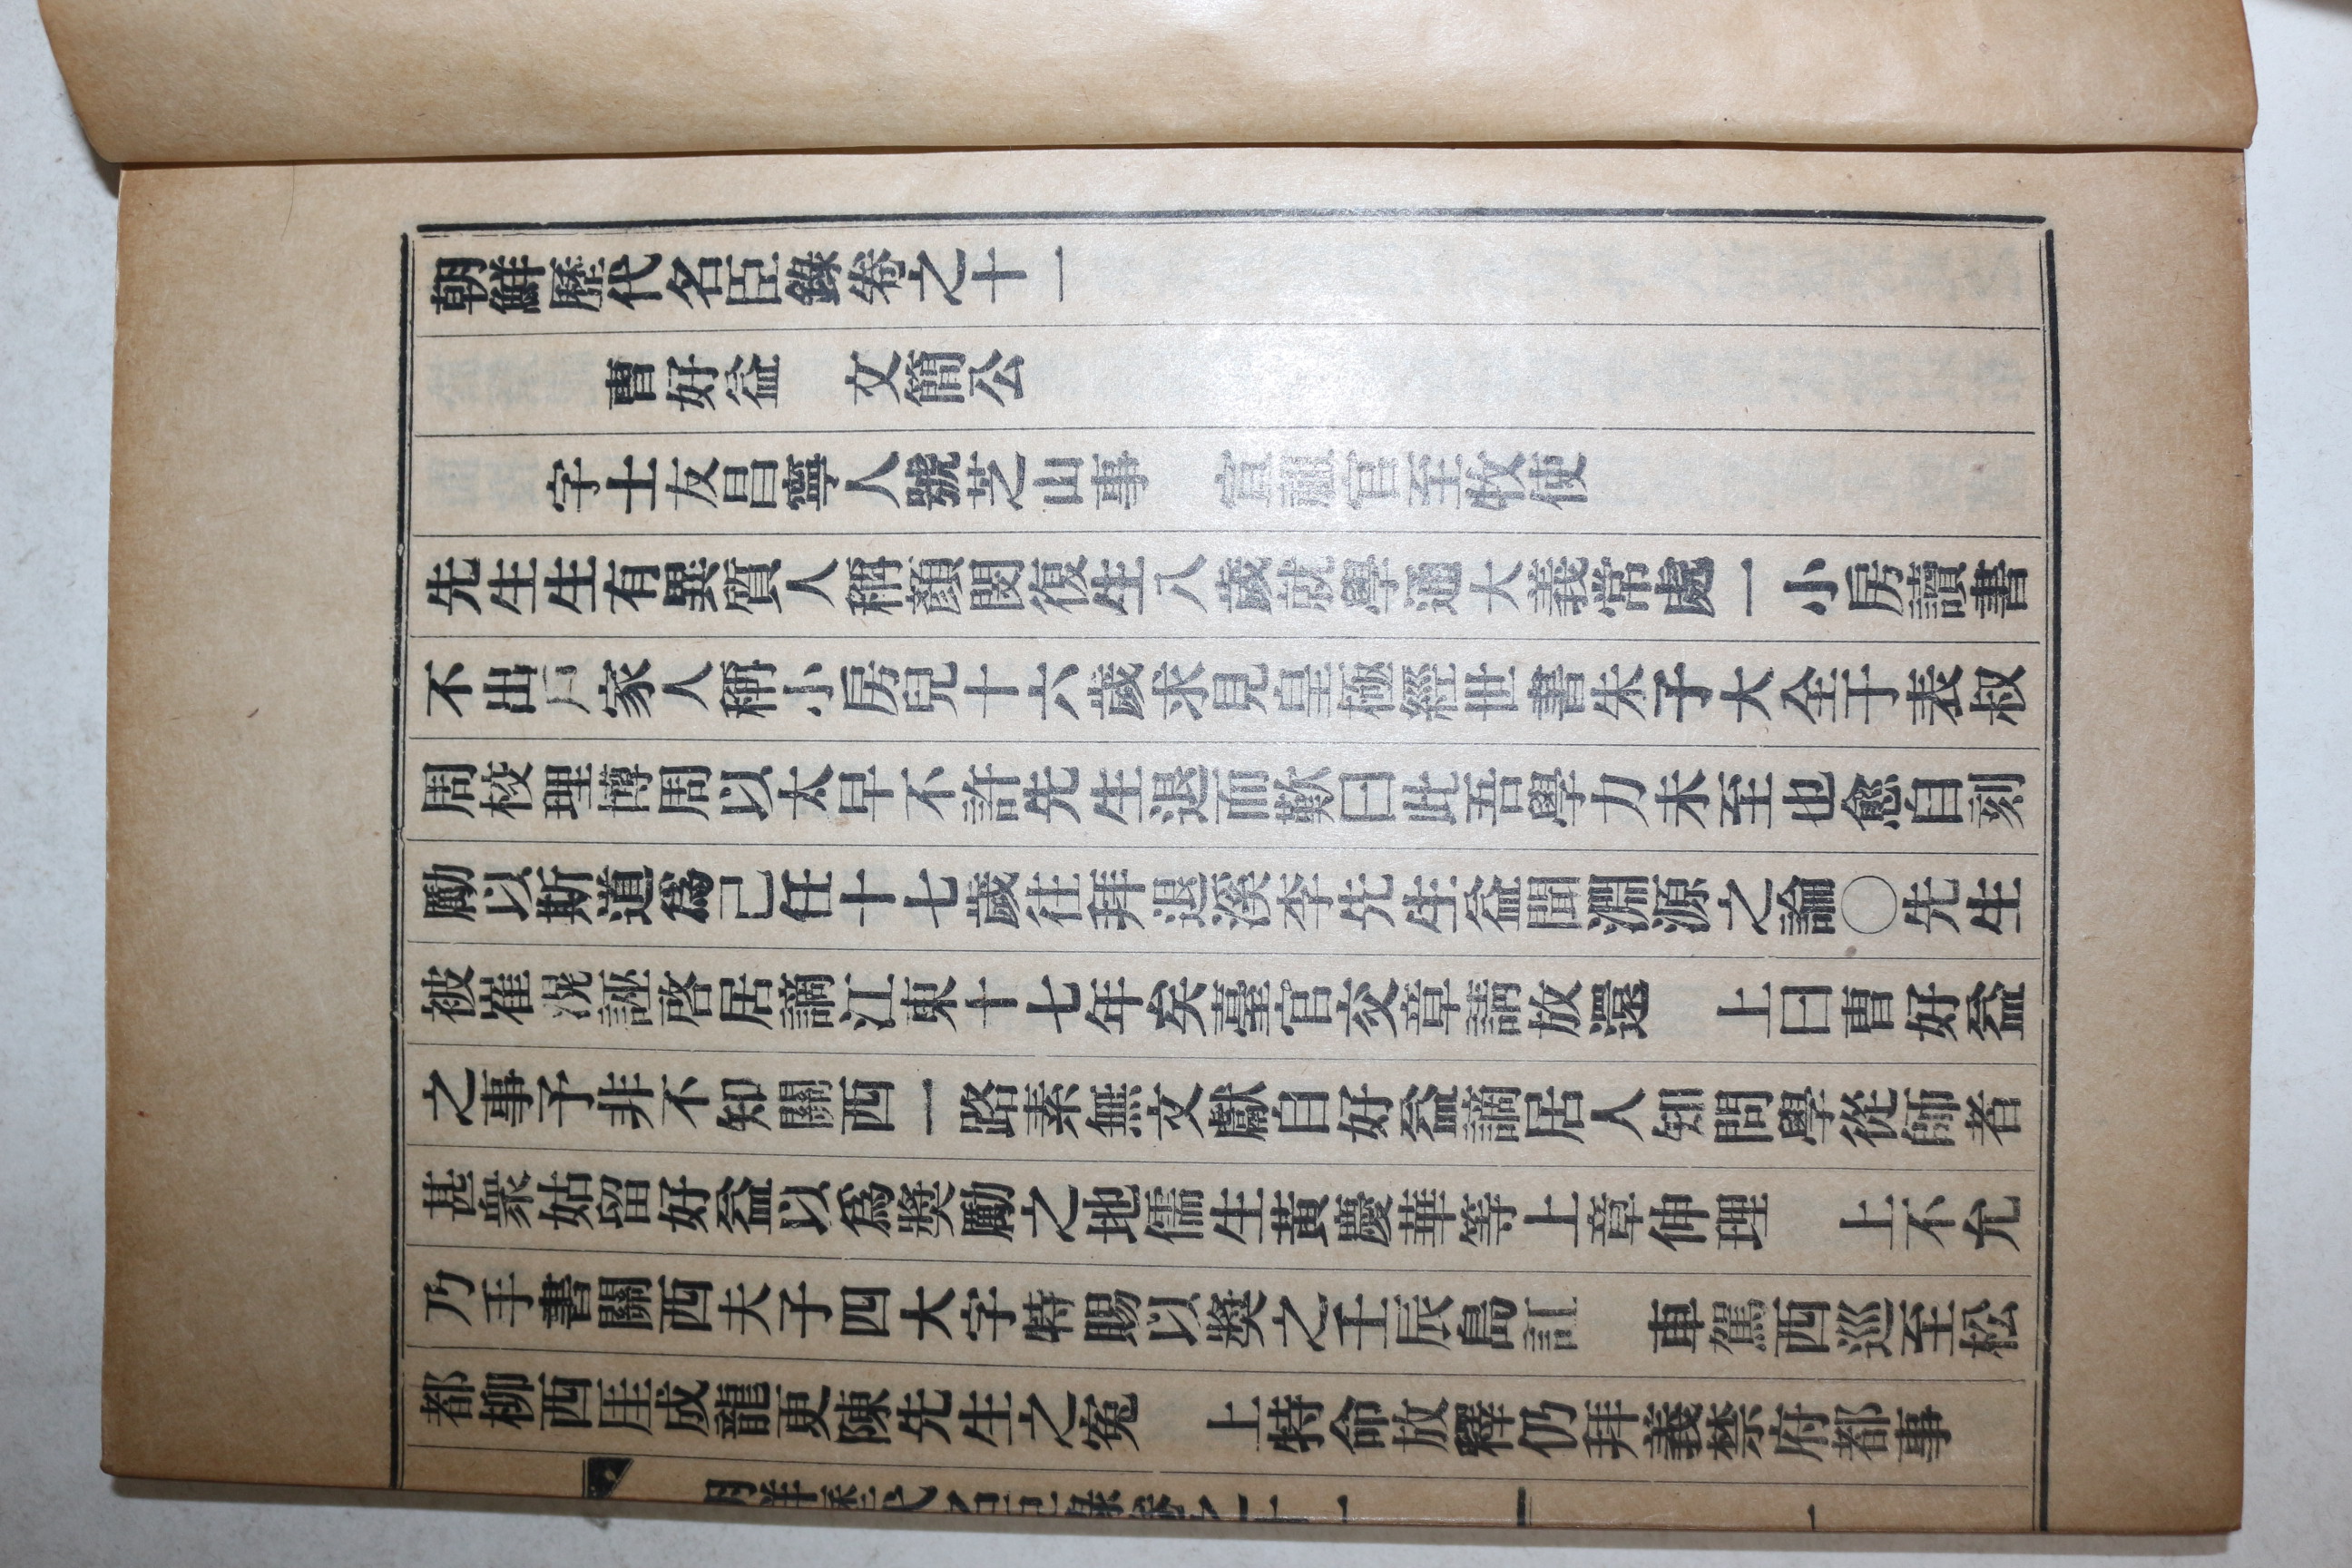 朝鮮歷代名臣錄卷之十一
曺好益　文簡公
字士友昌寧人號芝山事　宣祖官至牧使
先生生有異質人稱顏閔復生八歲就學通大義常處一小房讀書
不出戶家人稱小房兒十六歲求見皇極經世書朱子大全于表叔
周校理博周以太早不許先生退而歎曰此吾學力未至也愈自刻
勵以斯道爲己任十七歲往拜退溪李先生益聞淵源之論○先生
被崔滉誣啓居謫江東十七年矣臺官交章請放還　上曰曺好益
之事予非不知關西一路素無文獻自好益謫居人知問學從師者
甚衆姑留好益以爲奬勵之地儒生黃慶華等上章伸理　上不允
乃手書關西夫子四大字特賜以奬之壬辰島訌　車駕西巡至松
都柳西厓成龍更陳先生之寃　上特命放釋仍拜義禁府都事